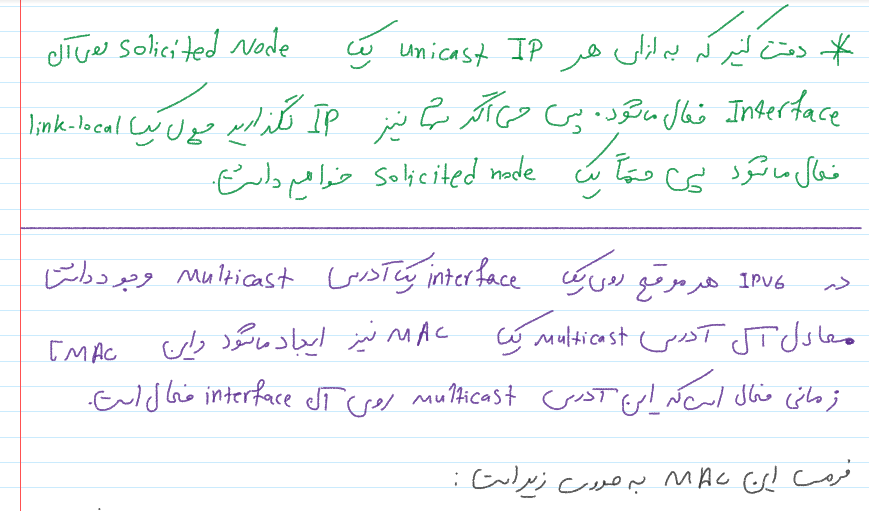 * دقت کنید که به ازای هر unicast IP یک Solicited Node روی آن
Interface فعال میشود. پس حتی اگر شما نیز IP نگذارید چون یک link-local
فعال میشود پس حتماً یک Solicited node خواهیم داشت.
در IPV6 هر موقع روی یک interface یک آدرس Multicast وجود داشت
معادل آن آدرس Multicast یک MAC نیز ایجاد میشود و این MAC تا
زمانی فعال است که این آدرس multicast روی آن interface فعال است.
فرمت این MAC به صورت زیر است :